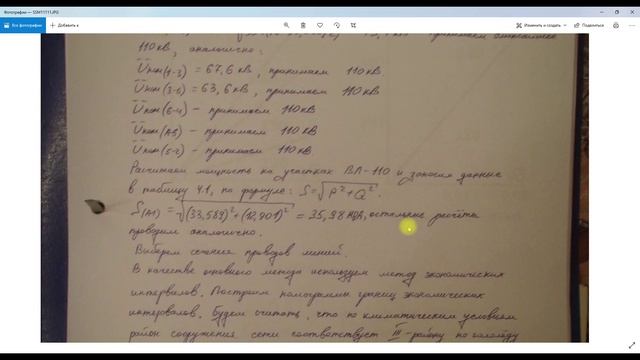 Фотографии — SSM11111.JPG
Все фотографии
Добавить к
Изменить и создать
Поделиться
110 кВ, аналогично:
Uном(1-3) = 67,6 кВ, принимаем 110 кВ
Uном(3-6) = 63,6 кВ, принимаем 110 кВ
Uном(6-4) - принимаем 110 кВ
Uном(А5) - принимаем 110 кВ
Uном(5-2) - принимаем 110 кВ
Рассчитаем мощность на участках ВЛ-110 и заносим данные
в таблицу 4.1, по формуле: S=√P²+Q².
S(А1) = √(33,589)²+(12,901)² = 35,98 МВА, остальные расчёты
проводим аналогично.
Выберем сечения проводов линий.
В качестве основного метода используем метод экономических
интервалов. Построим номограммы границ экономических
интервалов. Будем считать, что по климатическим условиям
район сооружения сети соответствует III-району по гололёду